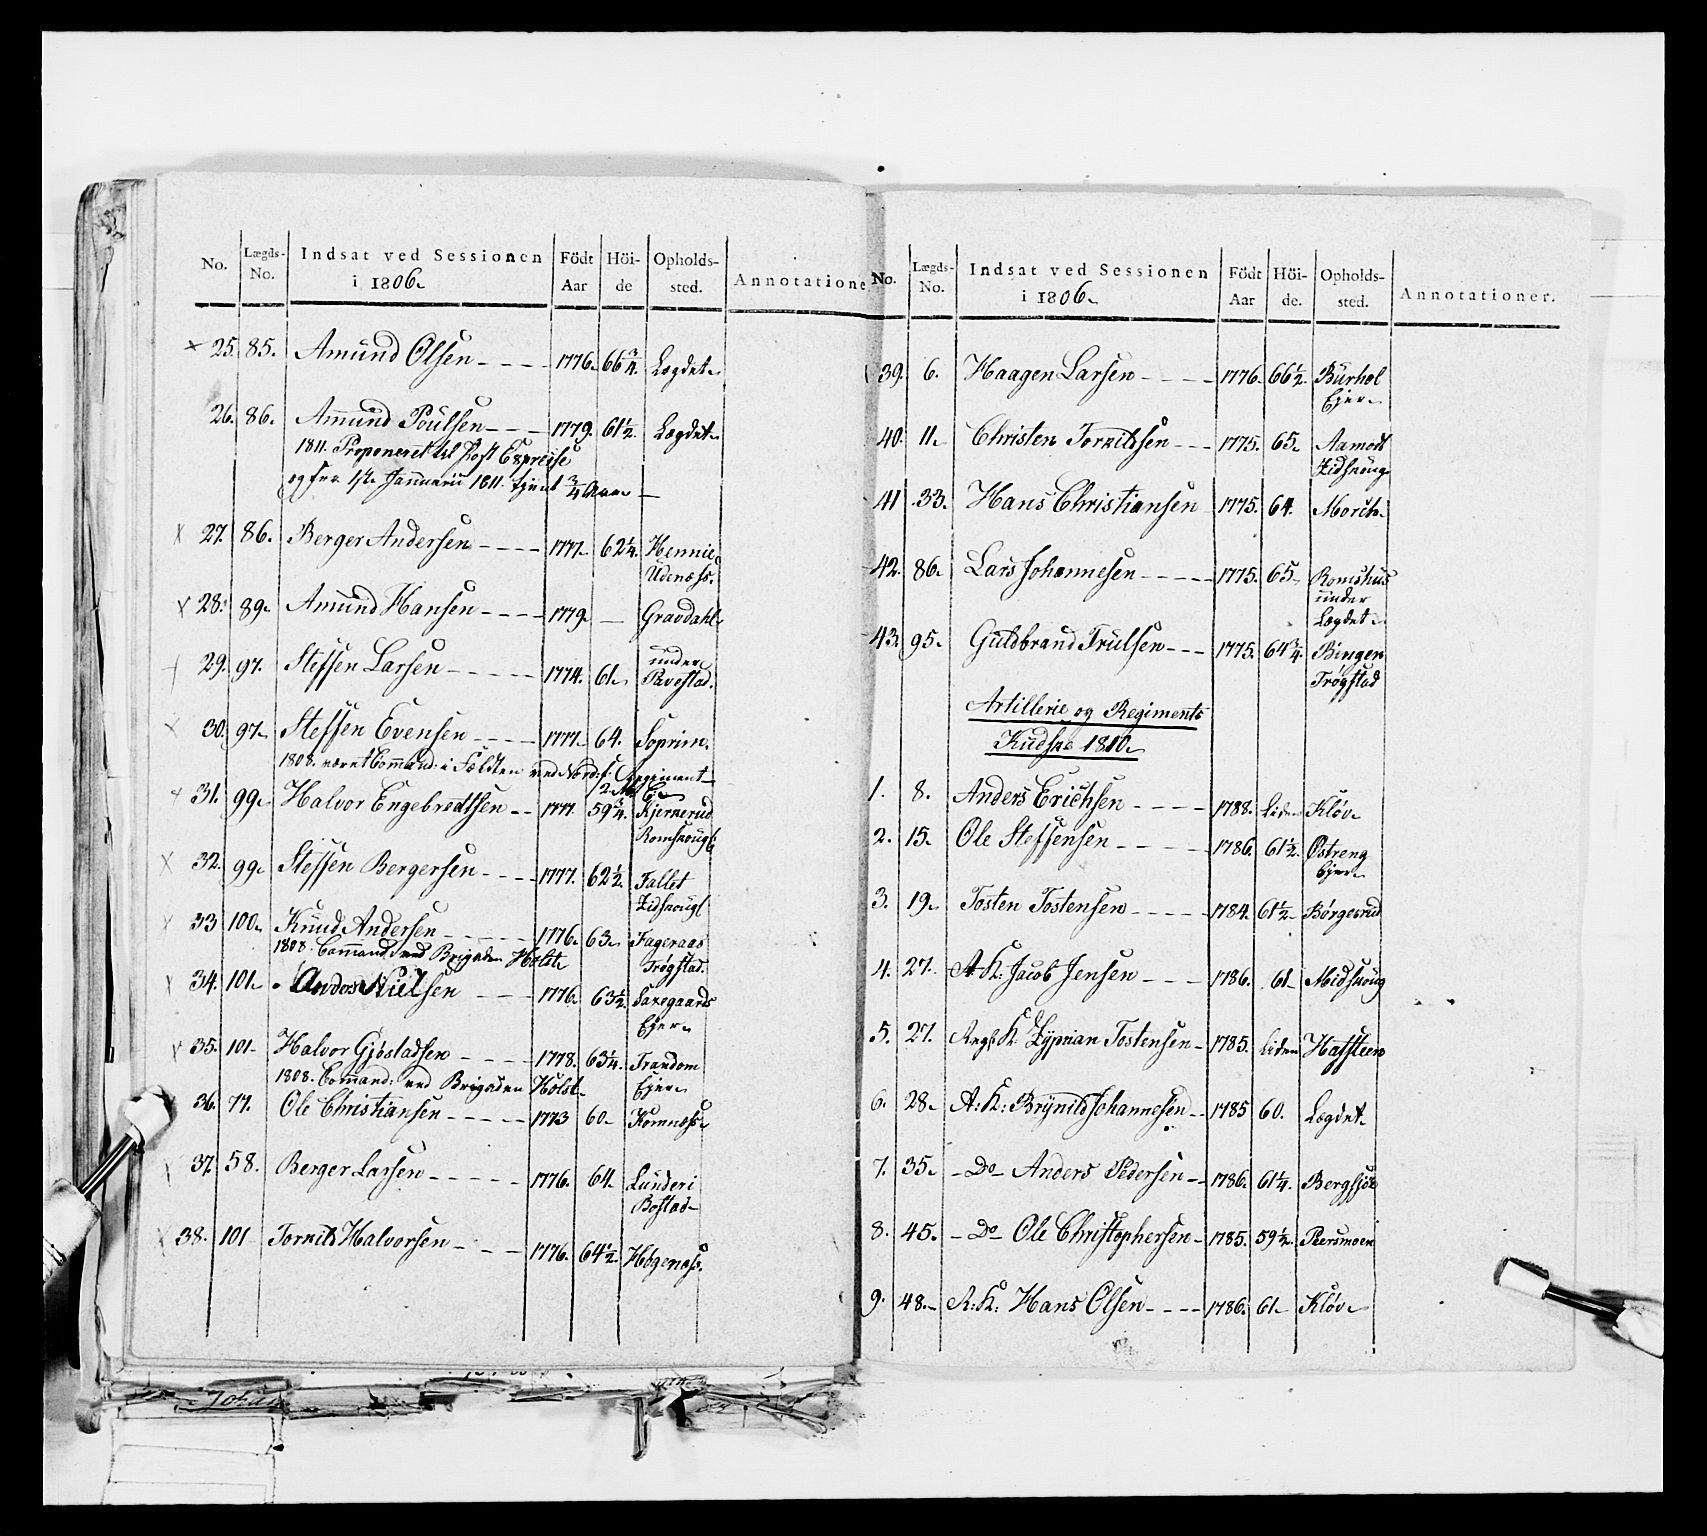 No. Lægds-No. Indsat ved Sessionen i 1806. Födt Aar Höi-de Opholds-sted. Annotatione
× 25. 85. Amund Olsen - - - - 1776. 66 3/4. Lægdet.
26. 86. Amund Poulsen - - - 1779. 61 1/2. Lægdet.
1811. Proponeret til Post Expreise
og før 1ste Januarii 1811. tjent 3/4 Aar. —
× 27. 86. Berger Andersen - - - - 1777. 62 1/4. Hennie
Udenæss.
× 28. 89. Amund Hansen - - - - 1779. — Gravdahl
29. 97. Steffen Larsen - - - - - 1774. 61. under
Pavestad.
× 30. 97. Steffen Evensen - - - - 1777. 64. Soprim.
1808. været Command: i Fældten ved Nord: f: Regiment
2. C.
31. 99. Halvor Engebredtsen - - 1777. 59 3/4. Kjerkerud
Romskougl
× 32. 99. Steffen Bergersen - - - - 1777. 62 1/2. Fallet
Zidskougl
× 33 100. Knud Andersen - - - - - 1776. 63. Fageraas
1808. Command: ved Brigaden Holst Trøgstad.
34. 101. Andos Nielsen - - - 1776. 63 1/2. Saxegaards
Ejer.
× 35. 101 - Halvor Gjöstadsen - - - - 1778. 63 1/4. Frandom
1808. Command: ved Brigaden Holst. Ejer.
36. 77. Ole Christiansen - - - - 1773 60. Komnæss.
37. 58. Berger Larsen - - - - - 1776. 64. Lunderi
Bostad.
38. 101 Torkild Halvorsen - - - - 1776. 64 1/2. Høgenæss.
No. Lægds-No. Indsat ved Sessionen i 1806. Födt Aar Höi-de. Opholds-sted. Annotationer.
39. 6. Haagen Larsen - - - - 1776. 66 1/2. Burhol
Ejer.
40. 11. Christen Torkildsen - - - 1775. 65. Aamodt
Zidskoug.
41 33. Hans Christiansen 1775. 64. Morch.
42. 86. Lars Johannesen - - - - - 1775. 65. Romshus
under
Lægdet.
43. 95. Guldbrand Trulsen - - - 1775. 64 3/4. Bingen
Trøgstad
Artillerie og Regiments
Kudske 1810.
1. 8. Anders Erichsen - - - - 1788. Liden Kløv.
2. 15. Ole Steffensen - - - - - 1786. 61 1/2. Østreng
Ejer.
3. 19. Tosten Tostensen - - - - - 1784. 61 1/2. Børgesrud
4. 27. A: K: Jacob Jensen - - - 1786. 61 - Midskoug
5. 27. K. Zyprian Tostensen - 1785. Liden Hafsteen
6. 28. A: K: Brynild Johannesen - - 1785 60. Lægdet.
7. 35. - Do - Anders Pedersen - - 1786. 61 1/4. Bergsjøe
8. 45. - Do - Ole Christophersen - 1785. 59 1/2. Peersmoen
9. 48. - R: K: Hans Olsen - - - - 1786. 61. Kløv.